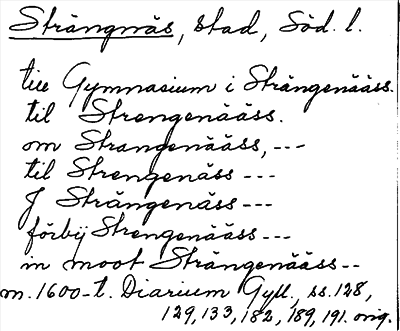 Strängnäs, stad, Söd. l.
till Gymnasium i Strängenääss.
til Strengenääss.
om Strangenääss, ---
til Strengenäss ---
J Strängenäss ---
förbij Strengenääss ---
in moot Strängenääss --
m. 1600-t. Diarium Gyll., ss. 128,
129, 133, 182, 189, 191. orig.